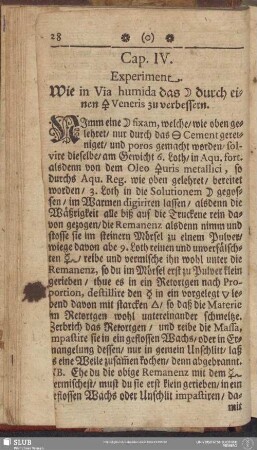 28 ❀ (o) ❀
Cap. IV.
Experiment
Wie in Via humida das ☽ durch ei-
nen ☿ Veneris zu verbessern.
NImm eine ☽ fixam, welche/ wie oben ge-
lehret/ nur durch das ⊖ Cement gerei-
niget/ und poros gemacht worden/ sol-
vire dieselbe/ am Gewicht 6. Loth/ in Aqu. fort.
alsdenn von dem Oleo ☿uris metallici, so
durchs Aqu. Reg. wie oben gelehret/ bereitet
worden/ 3. Loth in die Solutionem ☽ gegos-
sen/ im Warmen digiriren lassen/ alsdenn die
Wäßrigkeit alle biß auf die Truckene rein da-
von gezogen/ die Remanenz alsdenn nimm und
stosse sie im steinern Mörsel zu einem Pulver/
wiege davon abe 9. Loth reinen und unverfälsch-
ten / reibe und vermische ihn wohl unter die
Remanenz, so du im Mörsel erst zu Pulver klein
gerieben/ thue es in ein Retortgen nach Pro-
portion, destillire den ☿ in ein vorgelegt ▽ le-
bend davon mit starcken △/ so daß die Materie
im Retortgen wohl untereinander schmeltze.
Zerbrich das Retortgen/ und reibe die Massa,
impastire sie in ein geflossen Wachs/ oder in Er-
mangelung dessen/ nur in gemein Unschlitt/ laß
es eine Weile zusamen kochen/ denn abgebrannt.
NB. Ehe du die obige Remanenz mit dem
vermischest/ must du sie erst klein gerieben/ in ein
geflossen Wachs oder Unschlit impastiren/ da-
mit
SLUB